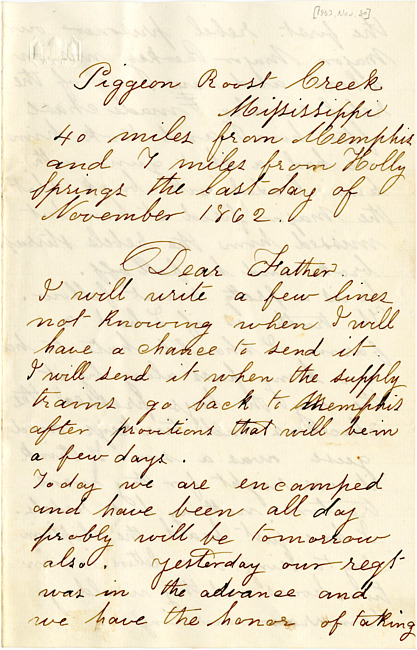 [1862, Nov. 30]
Piggeon Roost Creek
Mississippi
40 miles from Memphis
and 7 miles from Holly
Springs the last day of
November 1862.
Dear Father.
I will write a few lines
not knowing when I will
have a chance to send it.
I will send it when the supply
trains go back to Memphis
after provitions that will be in
a few days.
Today we are encamped
and have been all day
probly will be tomorrow
also. yesterday our regt
was in the advance and
we have the honor of taking